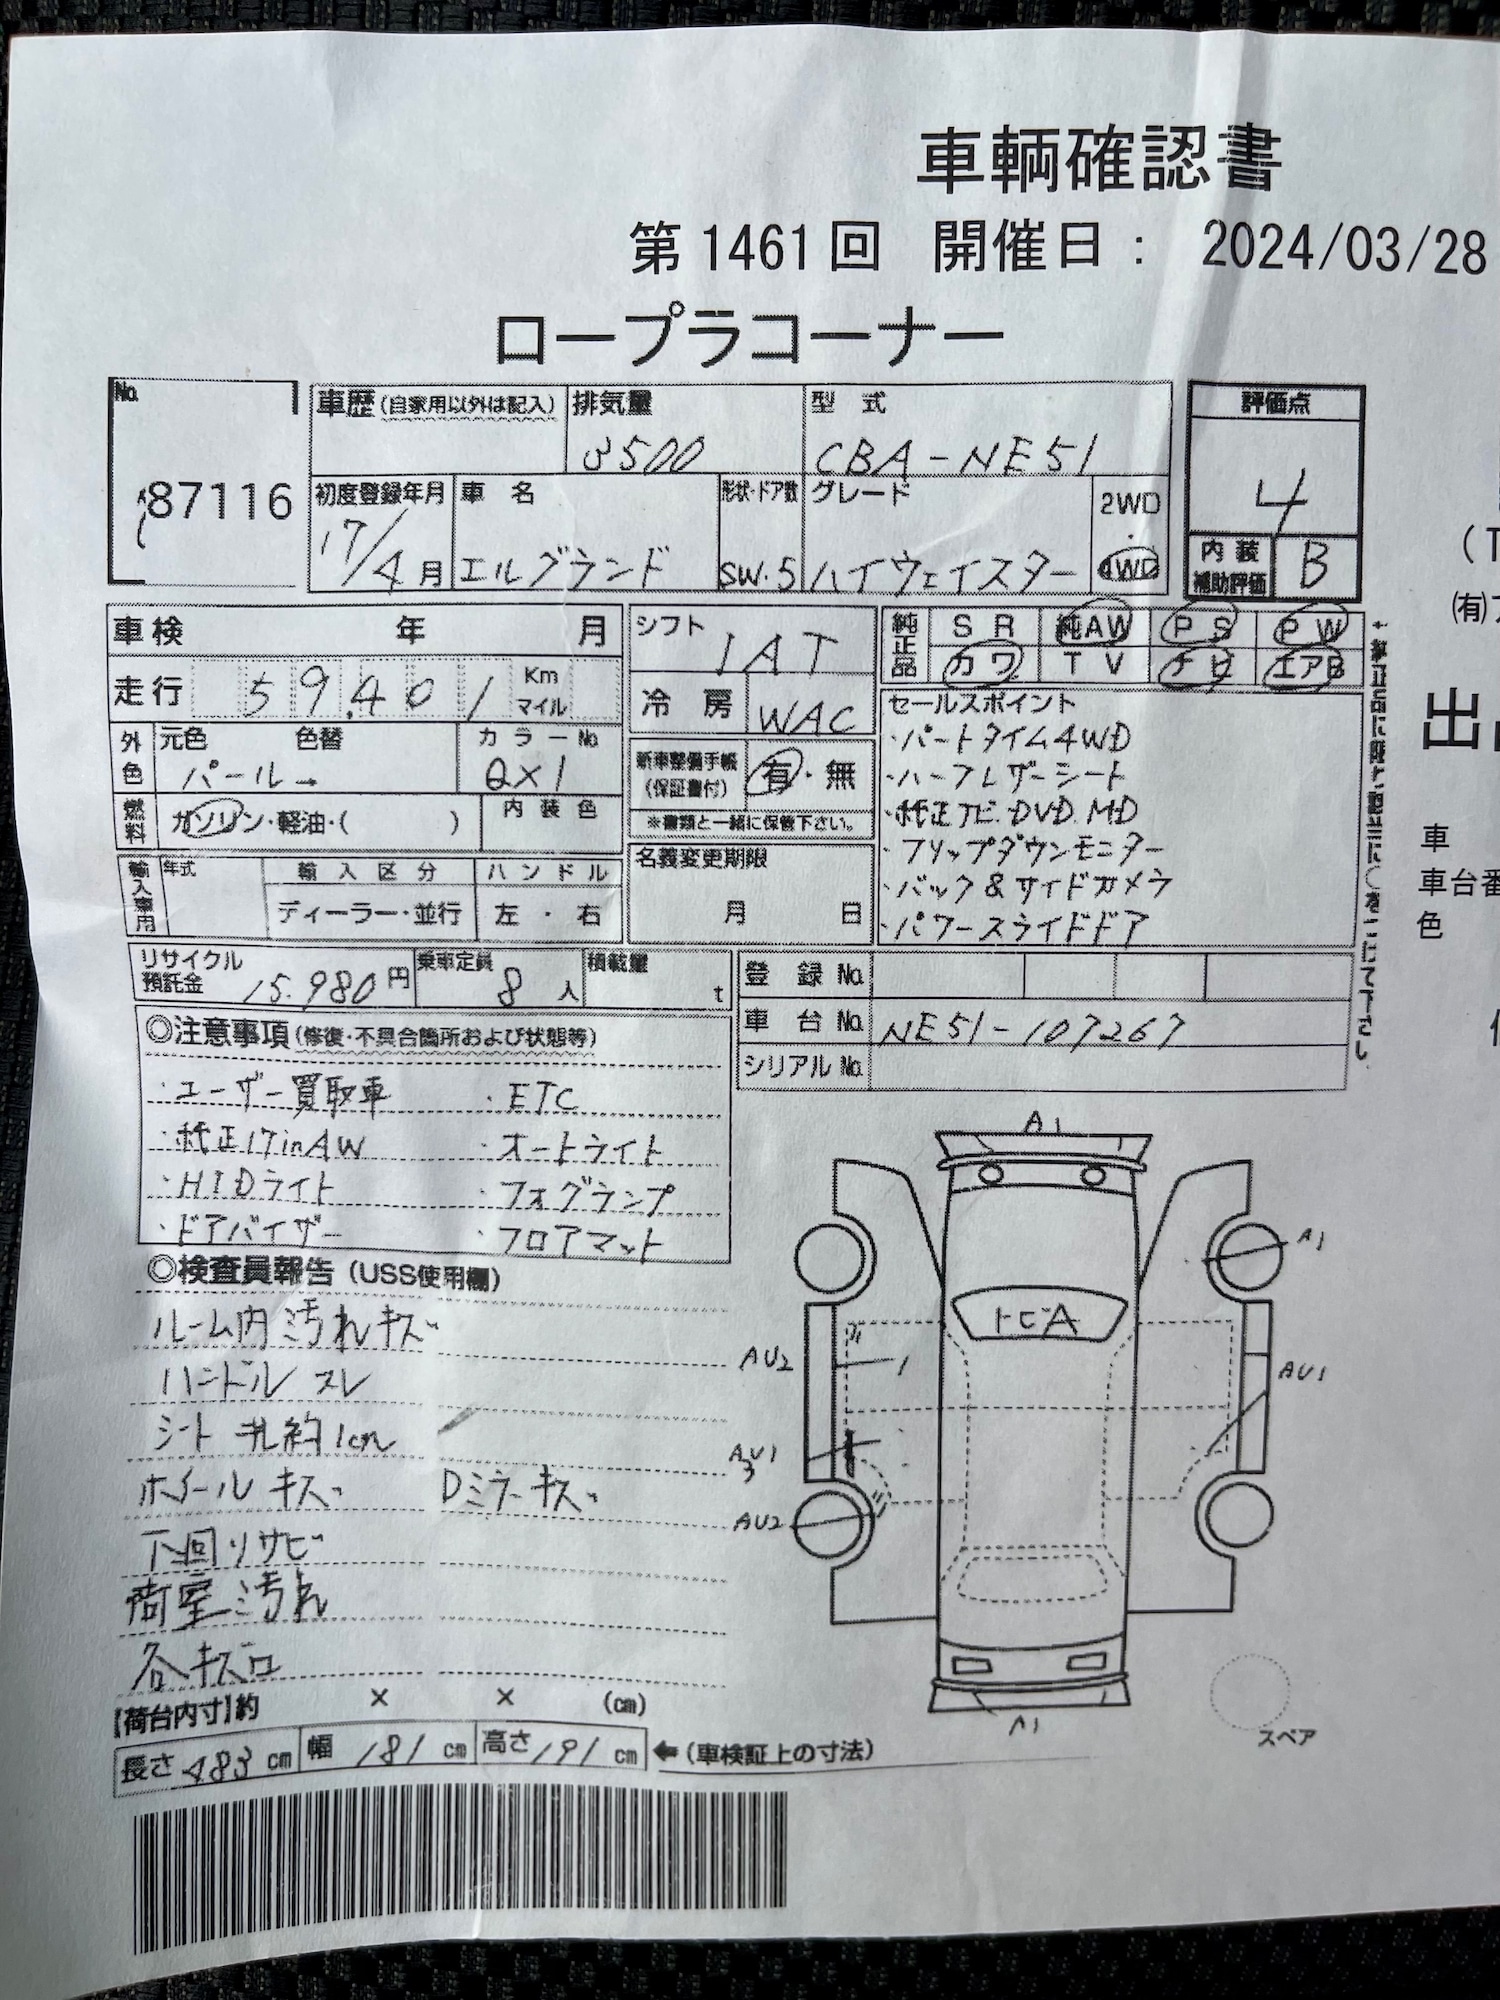 車輌確認書
第1461回 開催日： 2024/03/28
ロープラコーナー
No.
87116
車歴(自家用以外は記入) 排気量 型式
3500 CBA-NE51
初度登録年月 車名 形状・ドア数 グレード
17/4月 エルグランド SW.5 ハイウェイスター 2WD・4WD
評価点
4
内装補助評価 B
車検 年 月
走行 59,401 Km マイル
外色 元色 色替 カラーNo.
パール→ QX1
燃料 ガソリン・軽油・( ) 内装色
輸入車用 年式 輸入区分 ハンドル
ディーラー・並行 左・右
シフト IAT
冷房 WAC
新車整備手帳(保証書付) 有・無
※書類と一緒に保管下さい。
名義変更期限
月 日
純正品 SR 純AW PS PW
カワ TV ナビ エアB
セールスポイント
・パートタイム4WD
・ハーフレザーシート
・純正ナビ.DVD.MD
・フリップダウンモニター
・バック&サイドカメラ
・パワースライドドア
リサイクル預託金 15.980円 乗車定員 8人 積載量 t
登録No.
車台No. NE51-107267
シリアルNo.
◎注意事項(修復・不具合箇所および状態等)
・ユーザー買取車 ・ETC
・純正17inAW ・オートライト
・HIDライト ・フォグランプ
・ドアバイザー ・フロアマット
◎検査員報告(USS使用欄)
ルーム内汚れキズ
ハンドルスレ
シート 穴約1cm
ホイールキズ Dミラーキズ
下回りサビ
荷室汚れ
各キズ
A1
A1
トビA
AU2
AU1
AU2
A1
スペア
【荷台内寸】約 × × (cm)
長さ483cm 幅181cm 高さ191cm ←(車検証上の寸法)
(有)
車
車台番
色